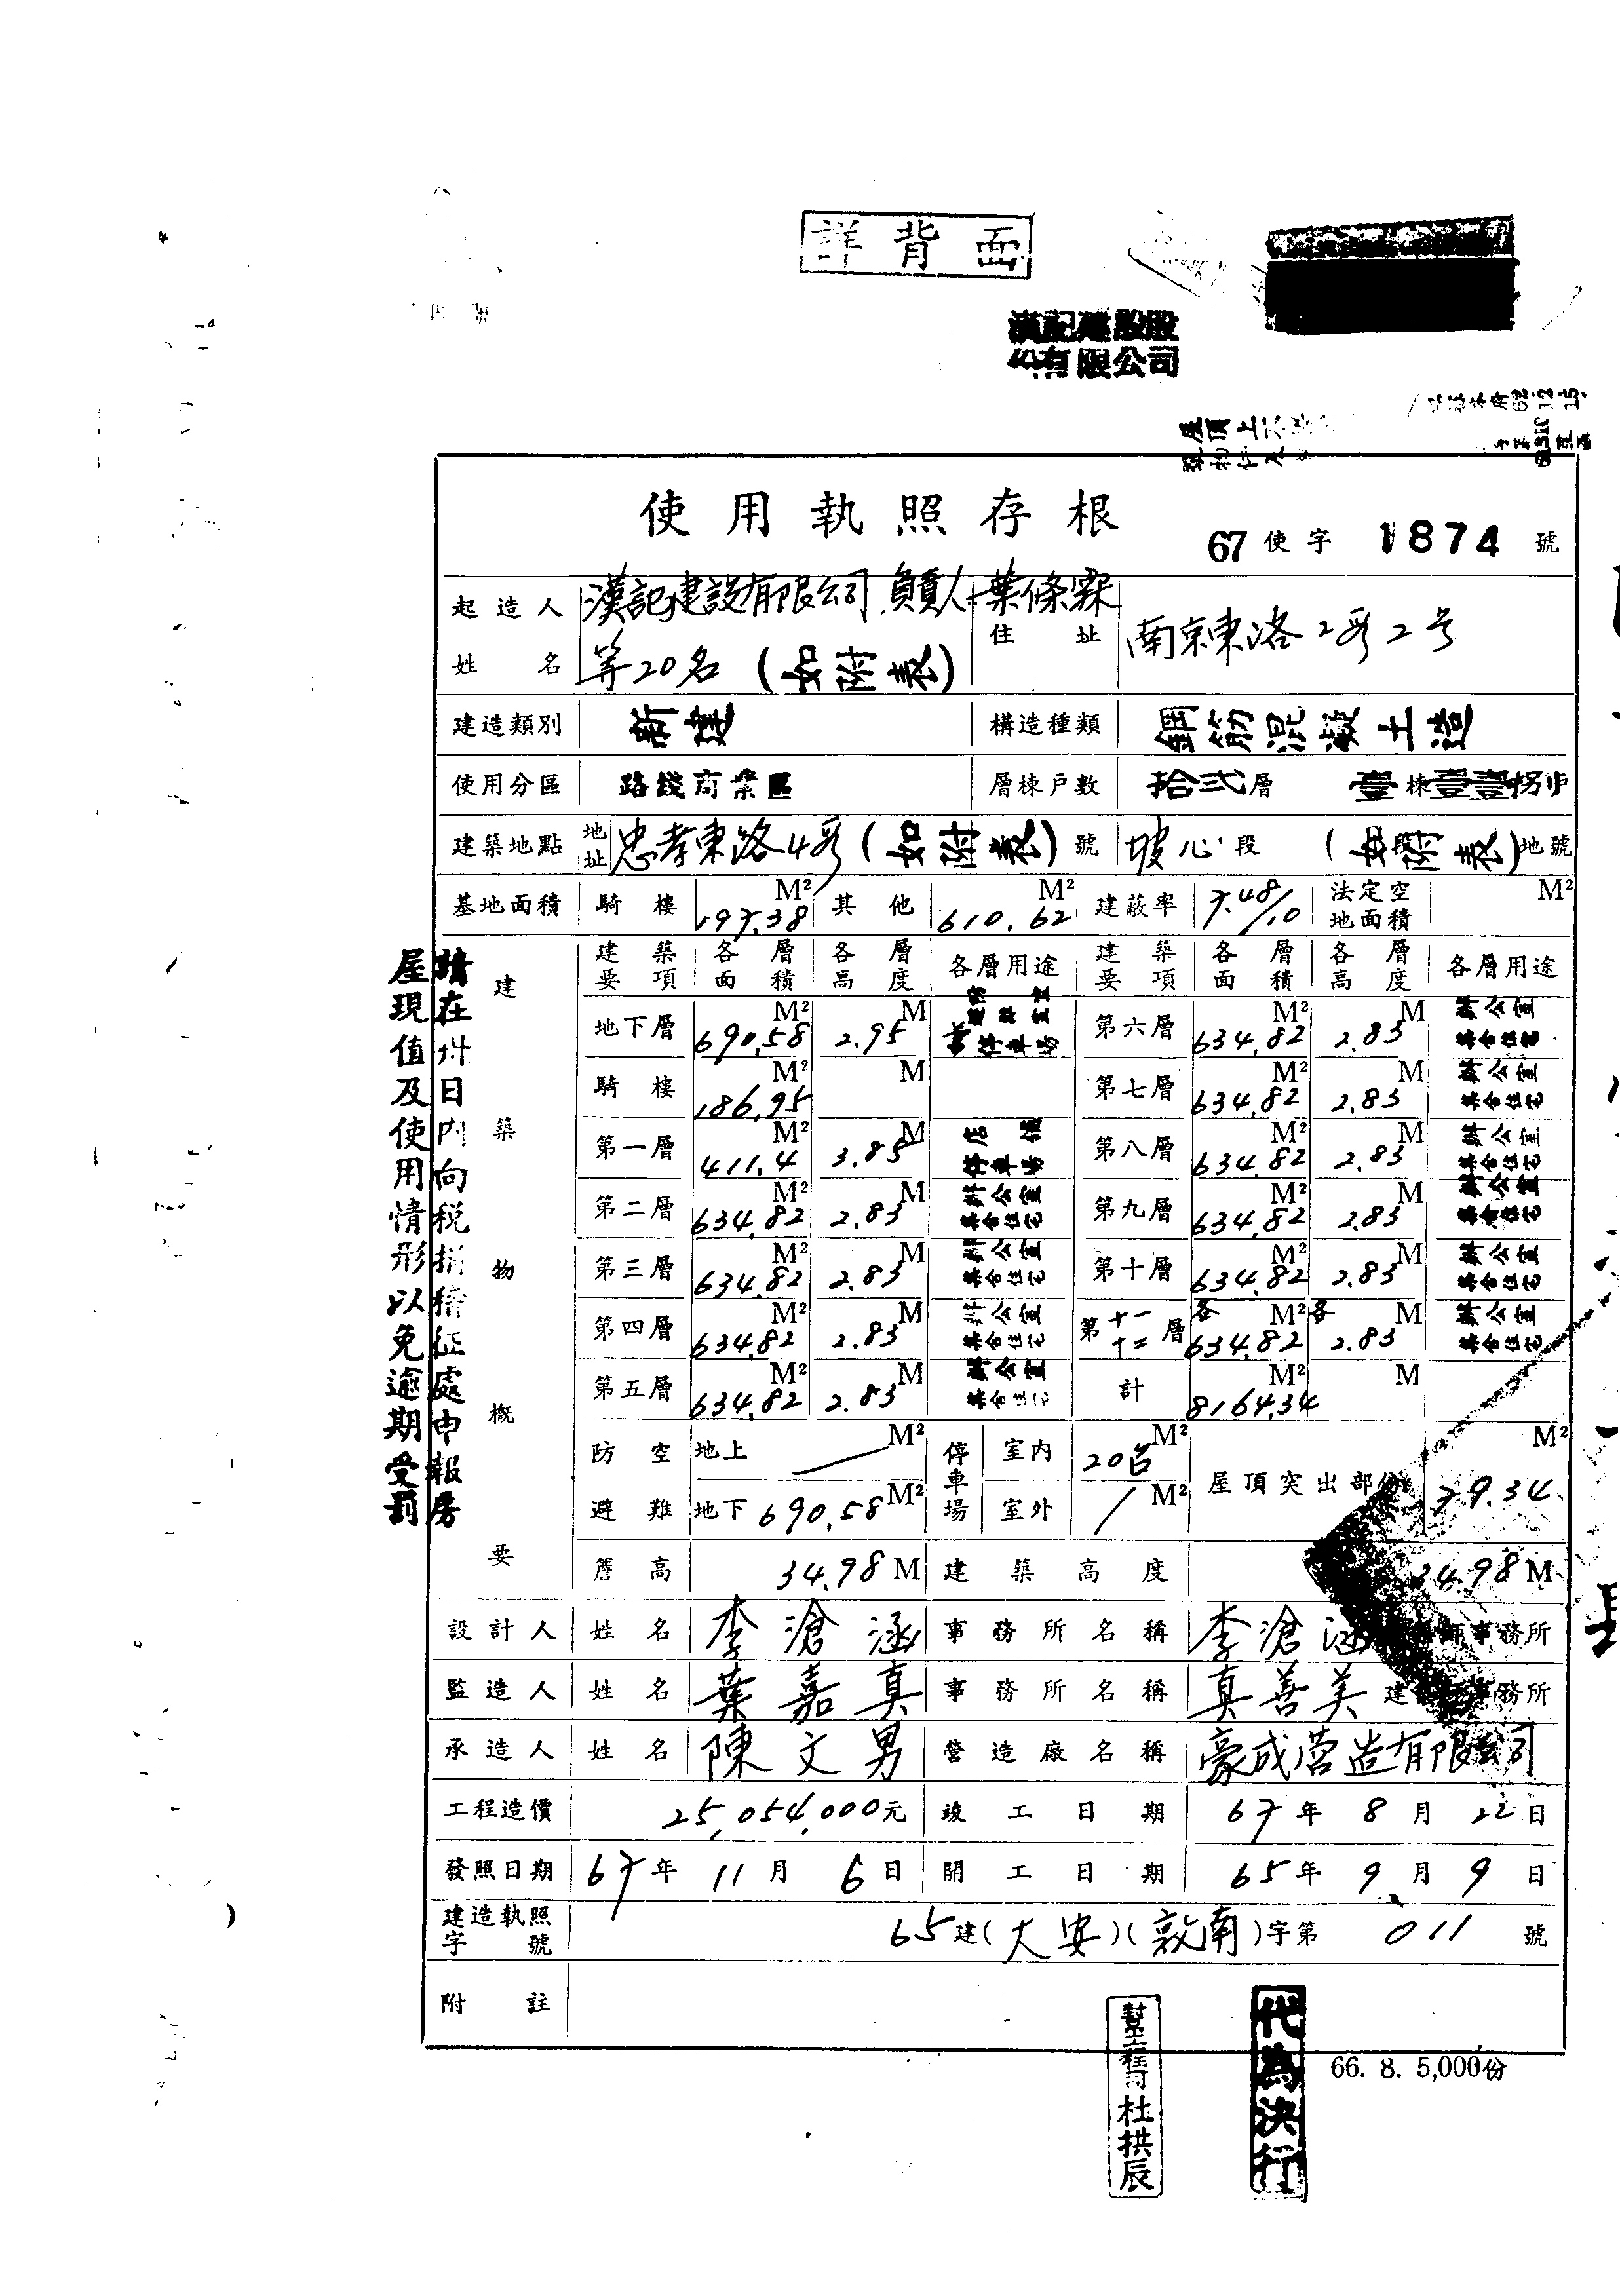 詳背面
漢記建設股
份有限公司
使用執照存根
67使字1874號
起造人姓名 漢記建設有限公司 負責人 葉條霖 等20名(如附表) 住址 南京東路2段2号
建造類別 新建 構造種類 鋼筋混凝土造
使用分區 路綫商業區 層棟戶數 拾弍層 壹棟壹壹拐戶
建築地點 地址 忠孝東路4段(如附表)號 坡心段(如附表)地號
基地面積 騎樓 197.38 M² 其他 610.62 M² 建蔽率 7.48/10 法定空地面積 M²
建築物概要
建築要項 各層面積 各層高度 各層用途 建築要項 各層面積 各層高度 各層用途
地下層 690.58 M² 2.95 M 停車場 第六層 634.82 M² 2.83 M 辦公室 集合住宅
騎樓 186.95 M² M 第七層 634.82 M² 2.83 M 辦公室 集合住宅
第一層 411.4 M² 3.85 M 店舖 停車場 第八層 634.82 M² 2.83 M 辦公室 集合住宅
第二層 634.82 M² 2.83 M 辦公室 集合住宅 第九層 634.82 M² 2.83 M 辦公室 集合住宅
第三層 634.82 M² 2.83 M 辦公室 集合住宅 第十層 634.82 M² 2.83 M 辦公室 集合住宅
第四層 634.82 M² 2.83 M 辦公室 集合住宅 第十一十二層 各 634.82 M² 各 2.83 M 辦公室 集合住宅
第五層 634.82 M² 2.83 M 辦公室 集合住宅 計 8164.34 M² M
防空避難 地上 — M² 停車場 室內 20台 M² 屋頂突出部份 79.34 M²
地下 690.58 M² 室外 / M²
簷高 34.98 M 建築高度 34.98 M
設計人 姓名 李滄涵 事務所名稱 李滄涵 師事務所
監造人 姓名 葉嘉真 事務所名稱 真善美 建 事務所
承造人 姓名 陳文男 營造廠名稱 豪成營造有限公司
工程造價 25,054,000元 竣工日期 67年8月22日
發照日期 67年11月6日 開工日期 65年9月9日
建造執照字號 65建(大安)(敦南)字第011號
附註
請在卅日內向稅捐稽征處申報房
屋現值及使用情形以免逾期受罰
幫工程司杜拱辰
代為決行
66. 8. 5,000份